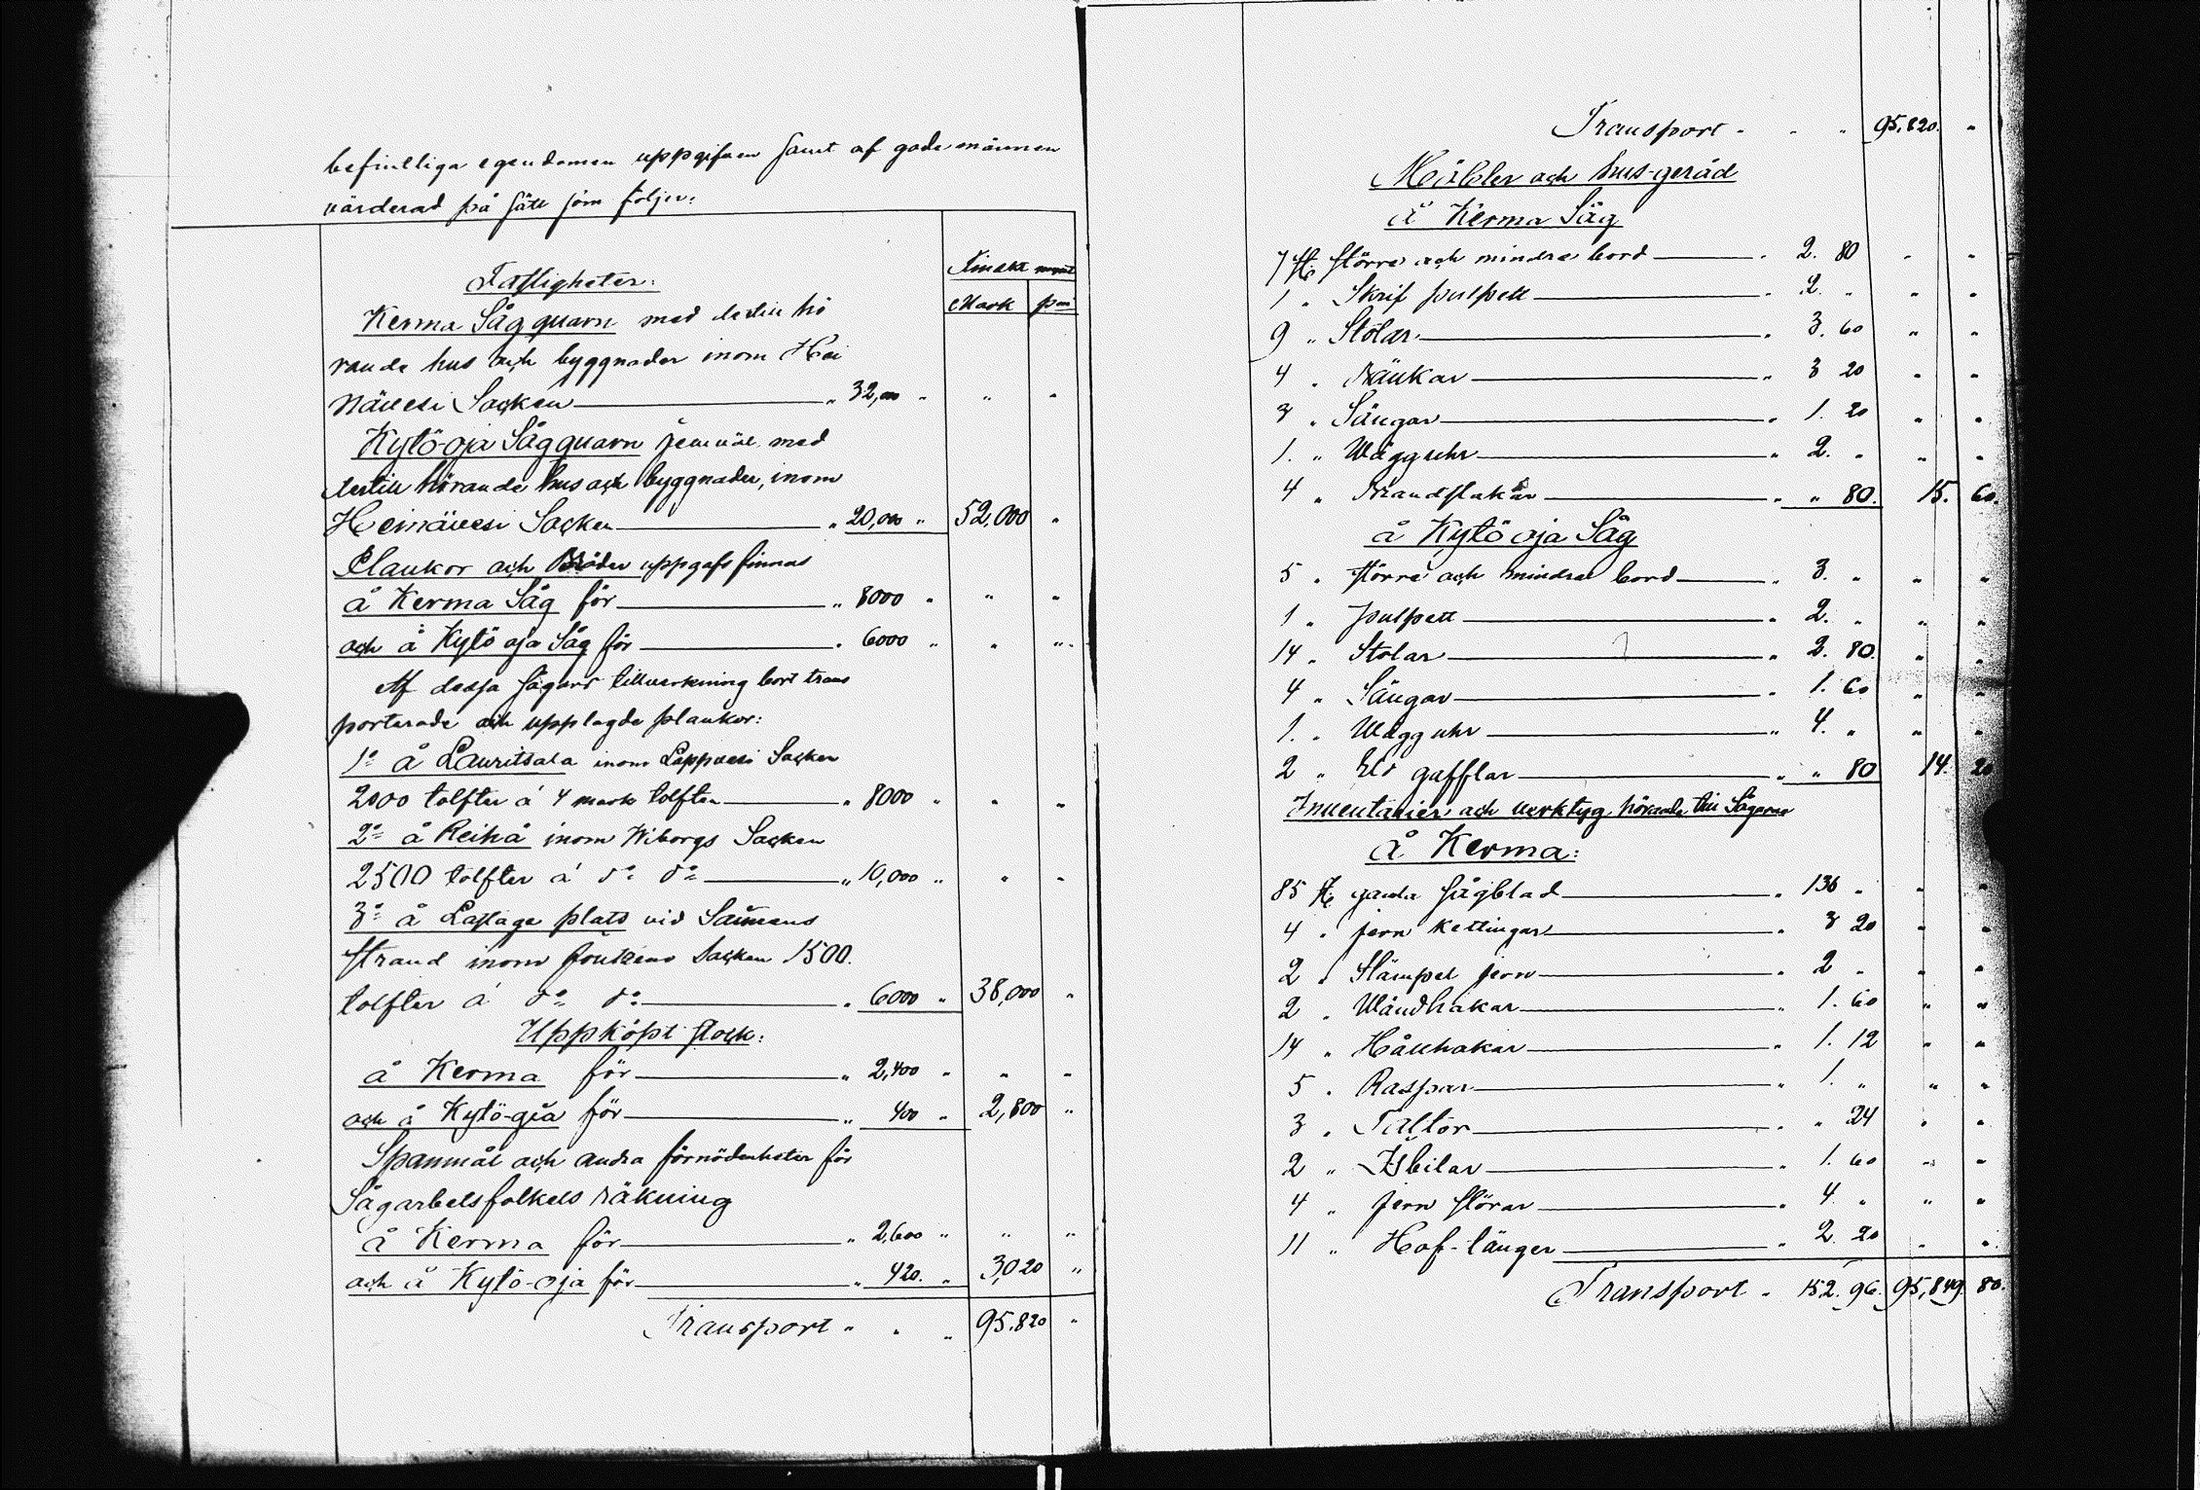 befintliga egendomen uppgifven samt af gode männen
värderad på sätt som följer:
Finskt mynt
Mark p:ni
Fastigheter:
Kerma Sågquarn med dertill hö
rande hus och byggnader inom Hei
näwesi Socken " 32,000 " " "
Kytö-oja Sågquarn jemväl med
dertill hörande hus och byggnader, inom
Heinäwesi Socken " 20,000 " 52,000 "
Plankor och Bräder uppgafs finnas
å Kerma Såg för " 8000 " " "
och å Kytö oja Såg för " 6000 " " "
Af dessa sågars tillverkning bort trans
porterade och upplagde plankor:
1:o å Lauritsala inom Lappvesi Socken
2000 tolfter á 4 mark tolften " 8000 " " "
2:o å Reihä inom Wiborgs Socken
2500 tolfter á d:o d:o " 10,000 " " "
3:o å Lastage plats vid Saimens
strand inom Joutseno Socken 1500.
tolfter á d:o d:o " 6000 " 38,000 "
Uppköpt stock:
å Kerma för " 2,400 " " "
och å Kytö-oja för " 400 " 2,800 "
Spanmål och andra förnödenheter för
Sågarbetsfolkets räkning
å Kerma för " 2,600 " " "
och å Kytö-oja för " 420. " 3,020 "
Transport " " " 95,820 "
Transport " " " 95,820. "
Möbler och hus-geråd
å Kerma Såg
7 st. större och mindre bord " 2. 80 " "
1 " Skrif pulpett " 2. " " "
9 " Stolar " 3. 60 " "
4 " Bänkar " 3 20 " "
3 " Sängar " 1. 20 " "
1. " Wägguhr " 2. " " "
4 " Brandstakar " " 80. 15. 60.
å Kytö oja Såg
5 " större och mindre bord " 3. " " "
1 " pulpett " 2. " " "
14 " Stolar " 2. 80. " "
4 " Sängar " 1. 60 " "
1. " Wägguhr " 4. " " "
2 " Eld gafflar " " 80 14. 20
Inventarier och verktyg hörande till Sågarne
å Kerma:
85 st. gamla sågblad " 136 " " "
4 " jern kettingar " 3 20 " "
2 " Stämpel jern " 2 " " "
2 " Wändhakar " 1. 60 " "
14 " Hållhakar " 1. 12 " "
5 " Raspar " 1. " " "
3 " Taltor " " 24 " "
2 " Isbilar " 1. 60 " "
4 " jern störar " 4 " " "
11 " Hof-tänger " 2. 20 " "
Transport " 152. 96. 95,849. 80.